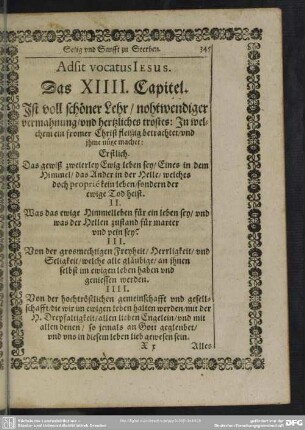 Selig vnd Sanfft zu Sterben. 345
Adsit vocatus IESUS.
Das XIIII. Capitel.
Ist voll schöner Lehr / nohtwendiger
vermahnung / vnd hertzliches trostes: In wel-
chem ein fromer Christ fleißig betrachtet / vnd
ihme nütze machet:
Erstlich.
Das gewiß zweierley Ewig leben sey / Eines in dem
Himmel / das Ander in der Helle / welches
doch propriè kein leben / sondern der
ewige Tod heist.
II.
Was das ewige Himmelleben für ein leben sey / vnd
was der Hellen zustand für marter
vnd pein sey?
III.
Von der grosmechtigen Freyheit / Herrligkeit / vnd
Seligkeit / welche alle gläubige / an ihnen
selbst im ewigen leben haben vnd
geniessen werden.
IIII.
Von der hochtröstlichen gemeinschafft vnd gesell-
schafft / die wir im ewigen leben halten werden / mit der
H. Dreyfaltigkeit / allen lieben Engelein / vnd mit
allen denen / so jemals an Gott gegleubet /
vnd vns in diesem leben lieb gewesen sein.
X 5 Alles